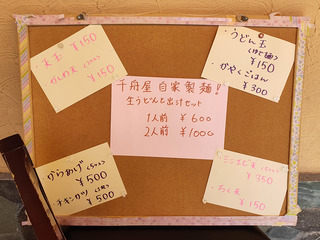 天玉 ¥150
かしわ天
¥150
うどん玉
(ゆで麺)
¥150
かやくごはん
¥300
千舟屋 自家製麺!
生うどんと出汁セット
1人前 ¥600
2人前 ¥1000
からあげ
¥500
チキンカツ
¥500
¥350
ちく天
¥150